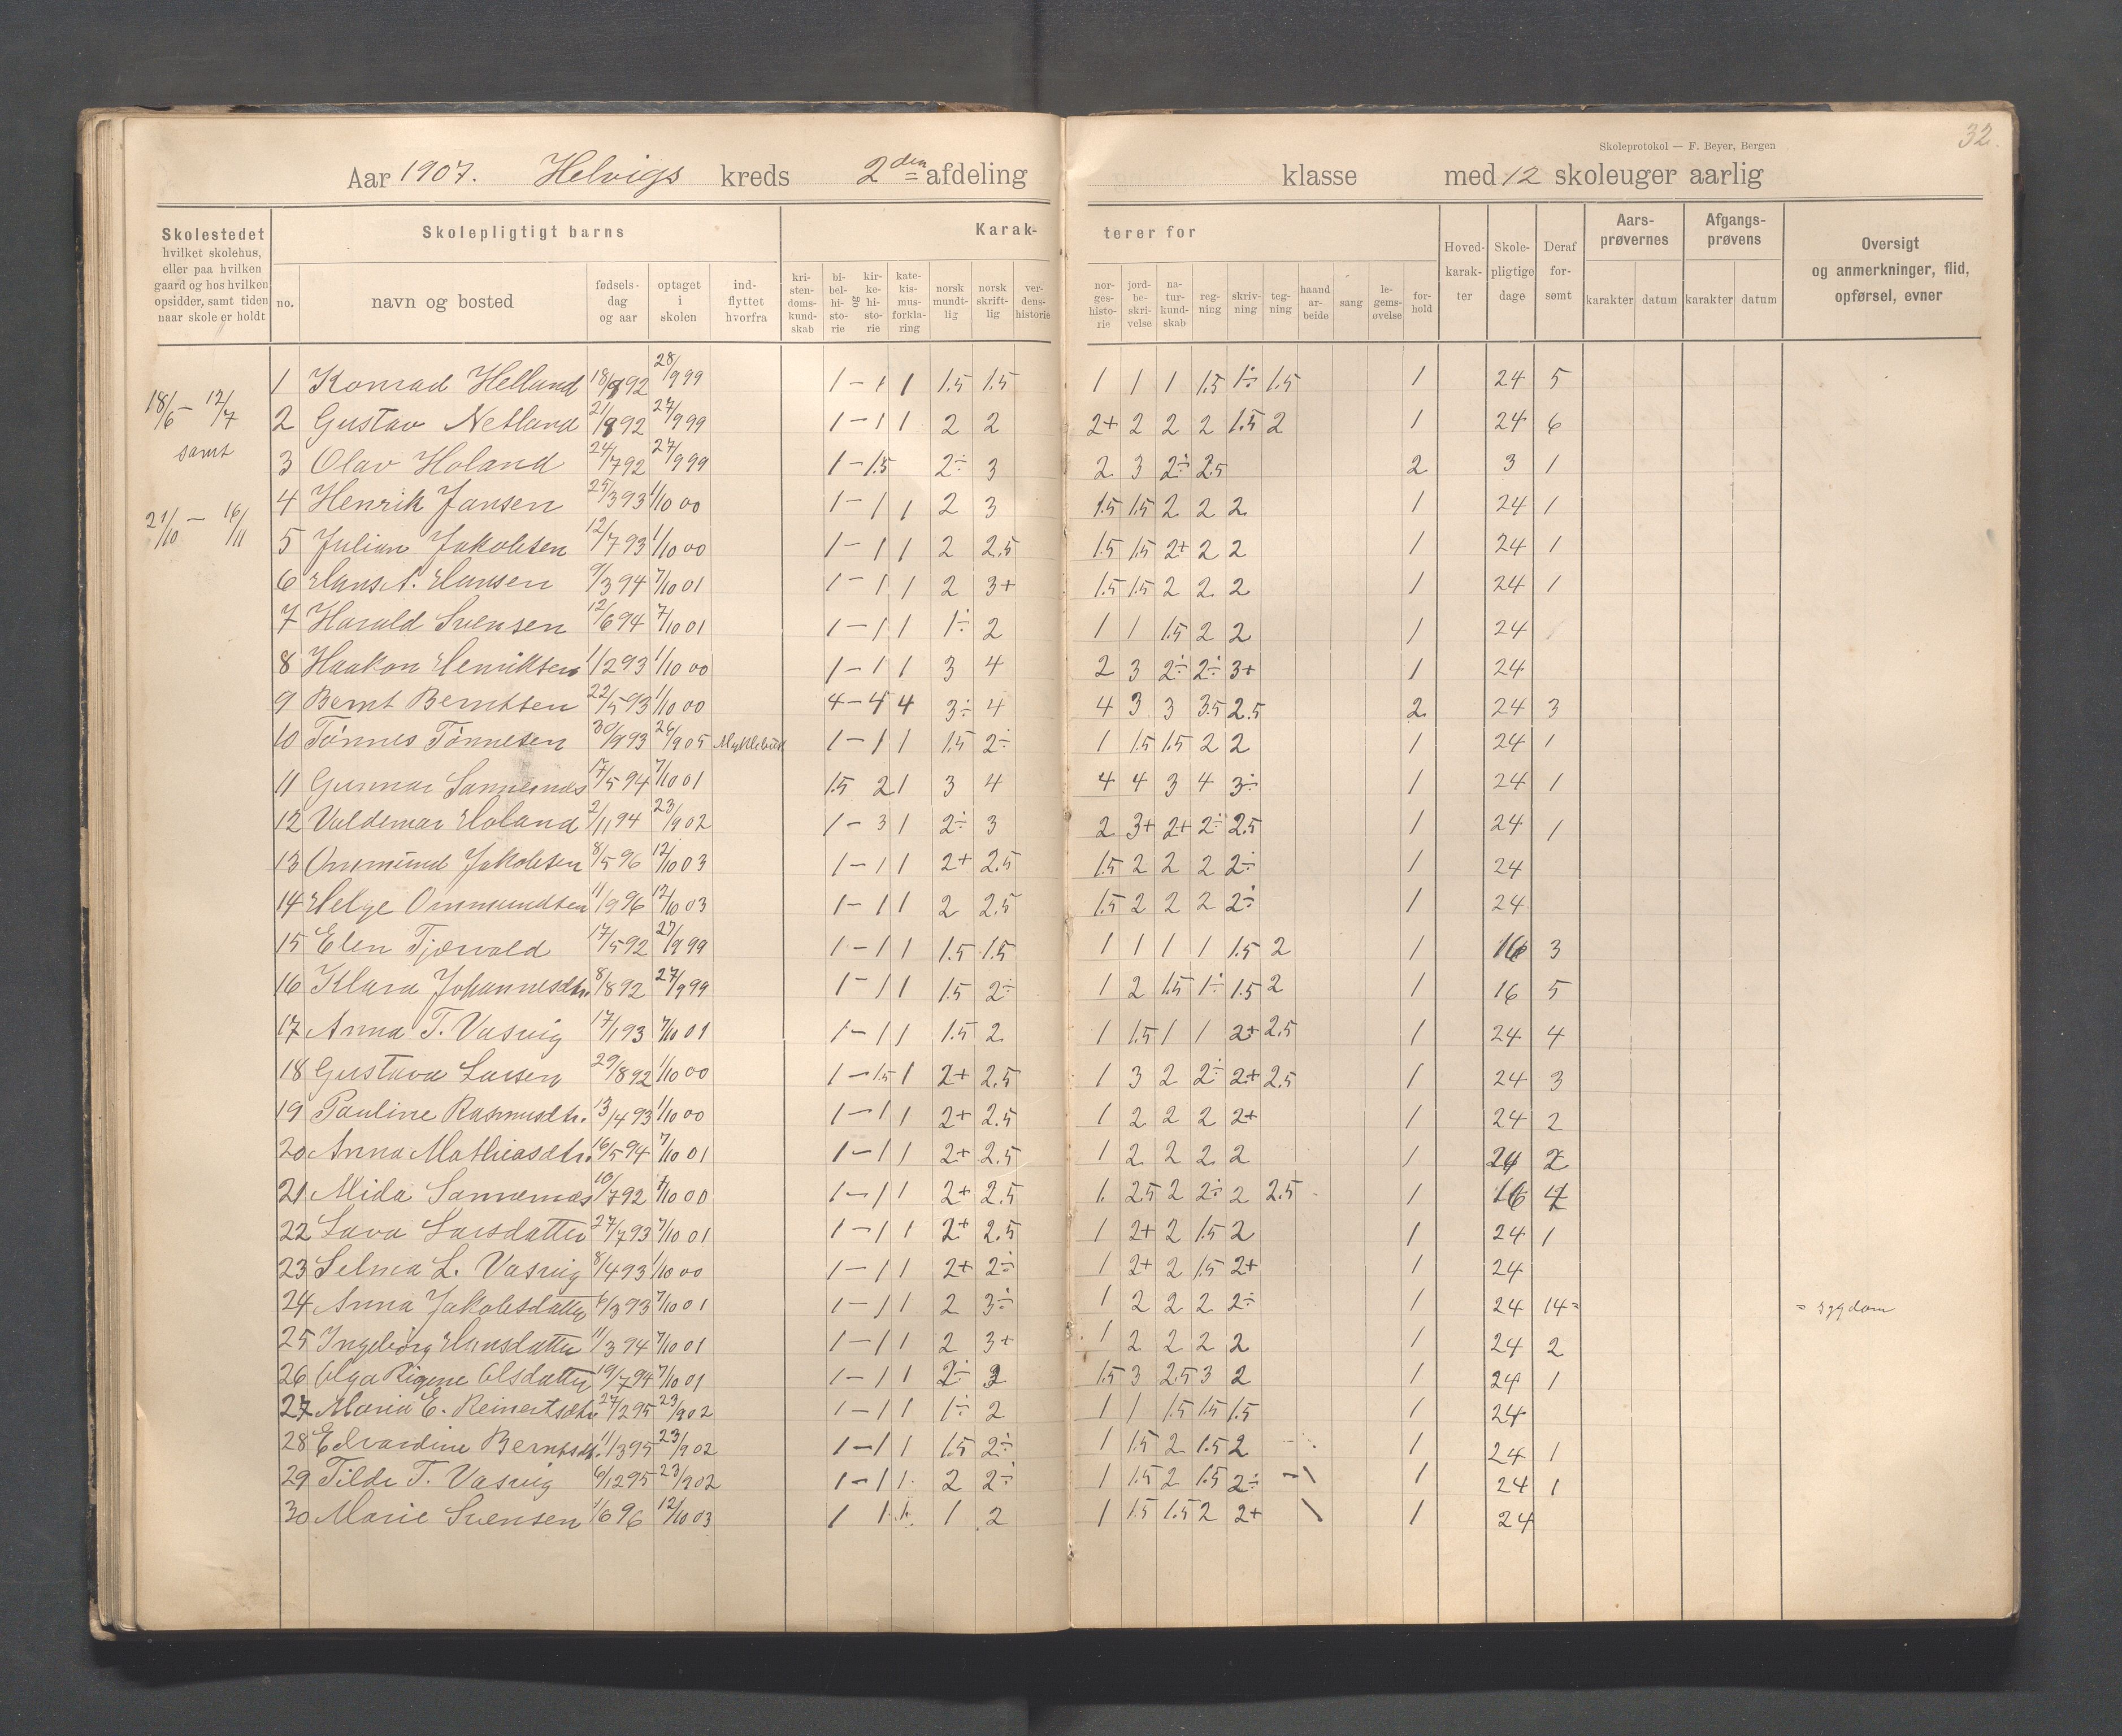 32.
Skoleprotokol — F. Beyer, Bergen
Aar 1907. Helvigs kreds 2den afdeling klasse med 12 skoleuger aarlig
Skolestedet hvilket skolehus, eller paa hvilken gaard og hos hvilken opsidder, samt tiden naar skole er holdt
Skolepligtigt barns
Karakterer for
no. navn og bosted fødselsdag og aar optaget i skolen indflyttet hvorfra
kristendomskundskab bibelhistorie og kirkehistorie katekismusforklaring norsk mundtlig norsk skriftlig verdenshistorie
norgeshistorie jordbeskrivelse naturkundskab regning skrivning tegning haandarbeide sang legemsøvelse forhold
Hovedkarakter Skolepligtige dage Deraf forsømt
Aarsprøvernes karakter datum
Afgangsprøvens karakter datum
Oversigt og anmerkninger, flid, opførsel, evner
18/6 – 12/7
samt
21/10 – 16/11
1 Konrad Helland 18/9 92 28/9 99 1 – 1 1 1.5 1.5 1 1 1 1.5 1÷ 1.5 1 24 5
2 Gustav Netland 21/8 92 27/9 99 1 – 1 1 2 2 2+ 2 2 2 1.5 2 1 24 6
3 Olav Holand 24/7 92 27/9 99 1 – 1.5 2÷ 3 2 3 2÷ 2.5 2 3 1
4 Henrik Jansen 25/3 93 1/10 00 1 – 1 1 2 3 1.5 1.5 2 2 2 1 24 1
5 Julian Jakobsen 12/7 93 1/10 00 1 – 1 1 2 2.5 1.5 1.5 2+ 2 2 1 24 1
6 Hans A. Hansen 9/3 94 7/10 01 1 – 1 1 2 3+ 1.5 1.5 2 2 2 1 24 1
7 Harald Svensen 12/6 94 7/10 01 1 – 1 1 1÷ 2 1 1 1.5 2 2 1 24
8 Haakon Henriksen 1/2 93 1/10 00 1 – 1 1 3 4 2 3 2÷ 2÷ 3+ 1 24
9 Bernt Berntsen 22/5 93 1/10 00 4 – 4 4 3÷ 4 4 3 3 3.5 2.5 2 24 3
10 Tönnes Tönnesen 30/9 93 26/9 05 Myklebust 1 – 1 1 1.5 2÷ 1 1.5 1.5 2 2 1 24 1
11 Gunnar Sannernæs 17/5 94 7/10 01 1.5 2 1 3 4 4 4 3 4 3÷ 1 24 1
12 Valdemar Holand 2/11 94 23/9 02 1 – 3 1 2÷ 3 2 3+ 2+ 2÷ 2.5 1 24 1
13 Ommund Jakobsen 8/5 96 12/10 03 1 – 1 1 2+ 2.5 1.5 2 2 2 2÷ 1 24
14 Helge Ommundsen 11/9 96 12/10 03 1 – 1 1 2 2.5 1.5 2 2 2 2÷ 1 24
15 Elen Tjørvold 17/5 92 27/9 99 1 – 1 1 1.5 1.5 1 1 1 1 1.5 2 1 16 3
16 Klara Johannesdtr. 8/8 92 27/9 99 1 – 1 1 1.5 2÷ 1 2 1.5 1÷ 1.5 2 1 16 5
17 Anna T. Vasvig 17/1 93 7/10 01 1 – 1 1 1.5 2 1 1.5 1 1 2+ 2.5 1 24 4
18 Gustava Larsen 29/8 92 1/10 00 1 – 1.5 1 2+ 2.5 1 3 2 2÷ 2+ 2.5 1 24 3
19 Pauline Rasmusdtr. 13/4 93 1/10 00 1 – 1 1 2+ 2.5 1 2 2 2 2+ 1 24 2
20 Anna Mathiasdtr. 16/5 94 7/10 01 1 – 1 1 2+ 2.5 1 2 2 2 2 1 24 2
21 Mida Sannernæs 10/7 92 1/10 00 1 – 1 1 2+ 2.5 1 2.5 2 2÷ 2 2.5 1 16 4
22 Lava Larsdatter 27/7 93 7/10 01 1 – 1 1 2+ 2.5 1 2+ 2 1.5 2 1 24 1
23 Selma L. Vasvig 8/4 93 1/10 00 1 – 1 1 2+ 2÷ 1 2+ 2 1.5 2+ 1 24
24 Anna Jakobsdatter 6/3 93 7/10 01 1 – 1 1 2 3÷ 1 2 2 2 2÷ 1 24 14= = sygdom
25 Ingeborg Hansdatter 11/3 94 7/10 01 1 – 1 1 2 3+ 1 2 2 2 2 1 24 2
26 Olga Rigene Olsdatter 19/7 94 7/10 01 1 – 1 1 2÷ 3 1.5 3 2.5 3 2 1 24 1
27 Maria E. Reinertsdtr. 27/2 95 23/9 02 1 – 1 1 1÷ 2 1 1 1.5 1.5 1.5 1 24
28 Edvardine Berntsdt. 11/3 95 23/9 02 1 – 1 1 1.5 2÷ 1 1.5 2 1.5 2 1 24 1
29 Tilde T. Vasvig 6/12 95 23/9 02 1 – 1 1 2 2÷ 1 1.5 2 1.5 2÷ 1 24 1
30 Marie Svensen 1/6 96 12/10 03 1 1 1 1 2 1 1.5 1.5 2 2+ 1 24